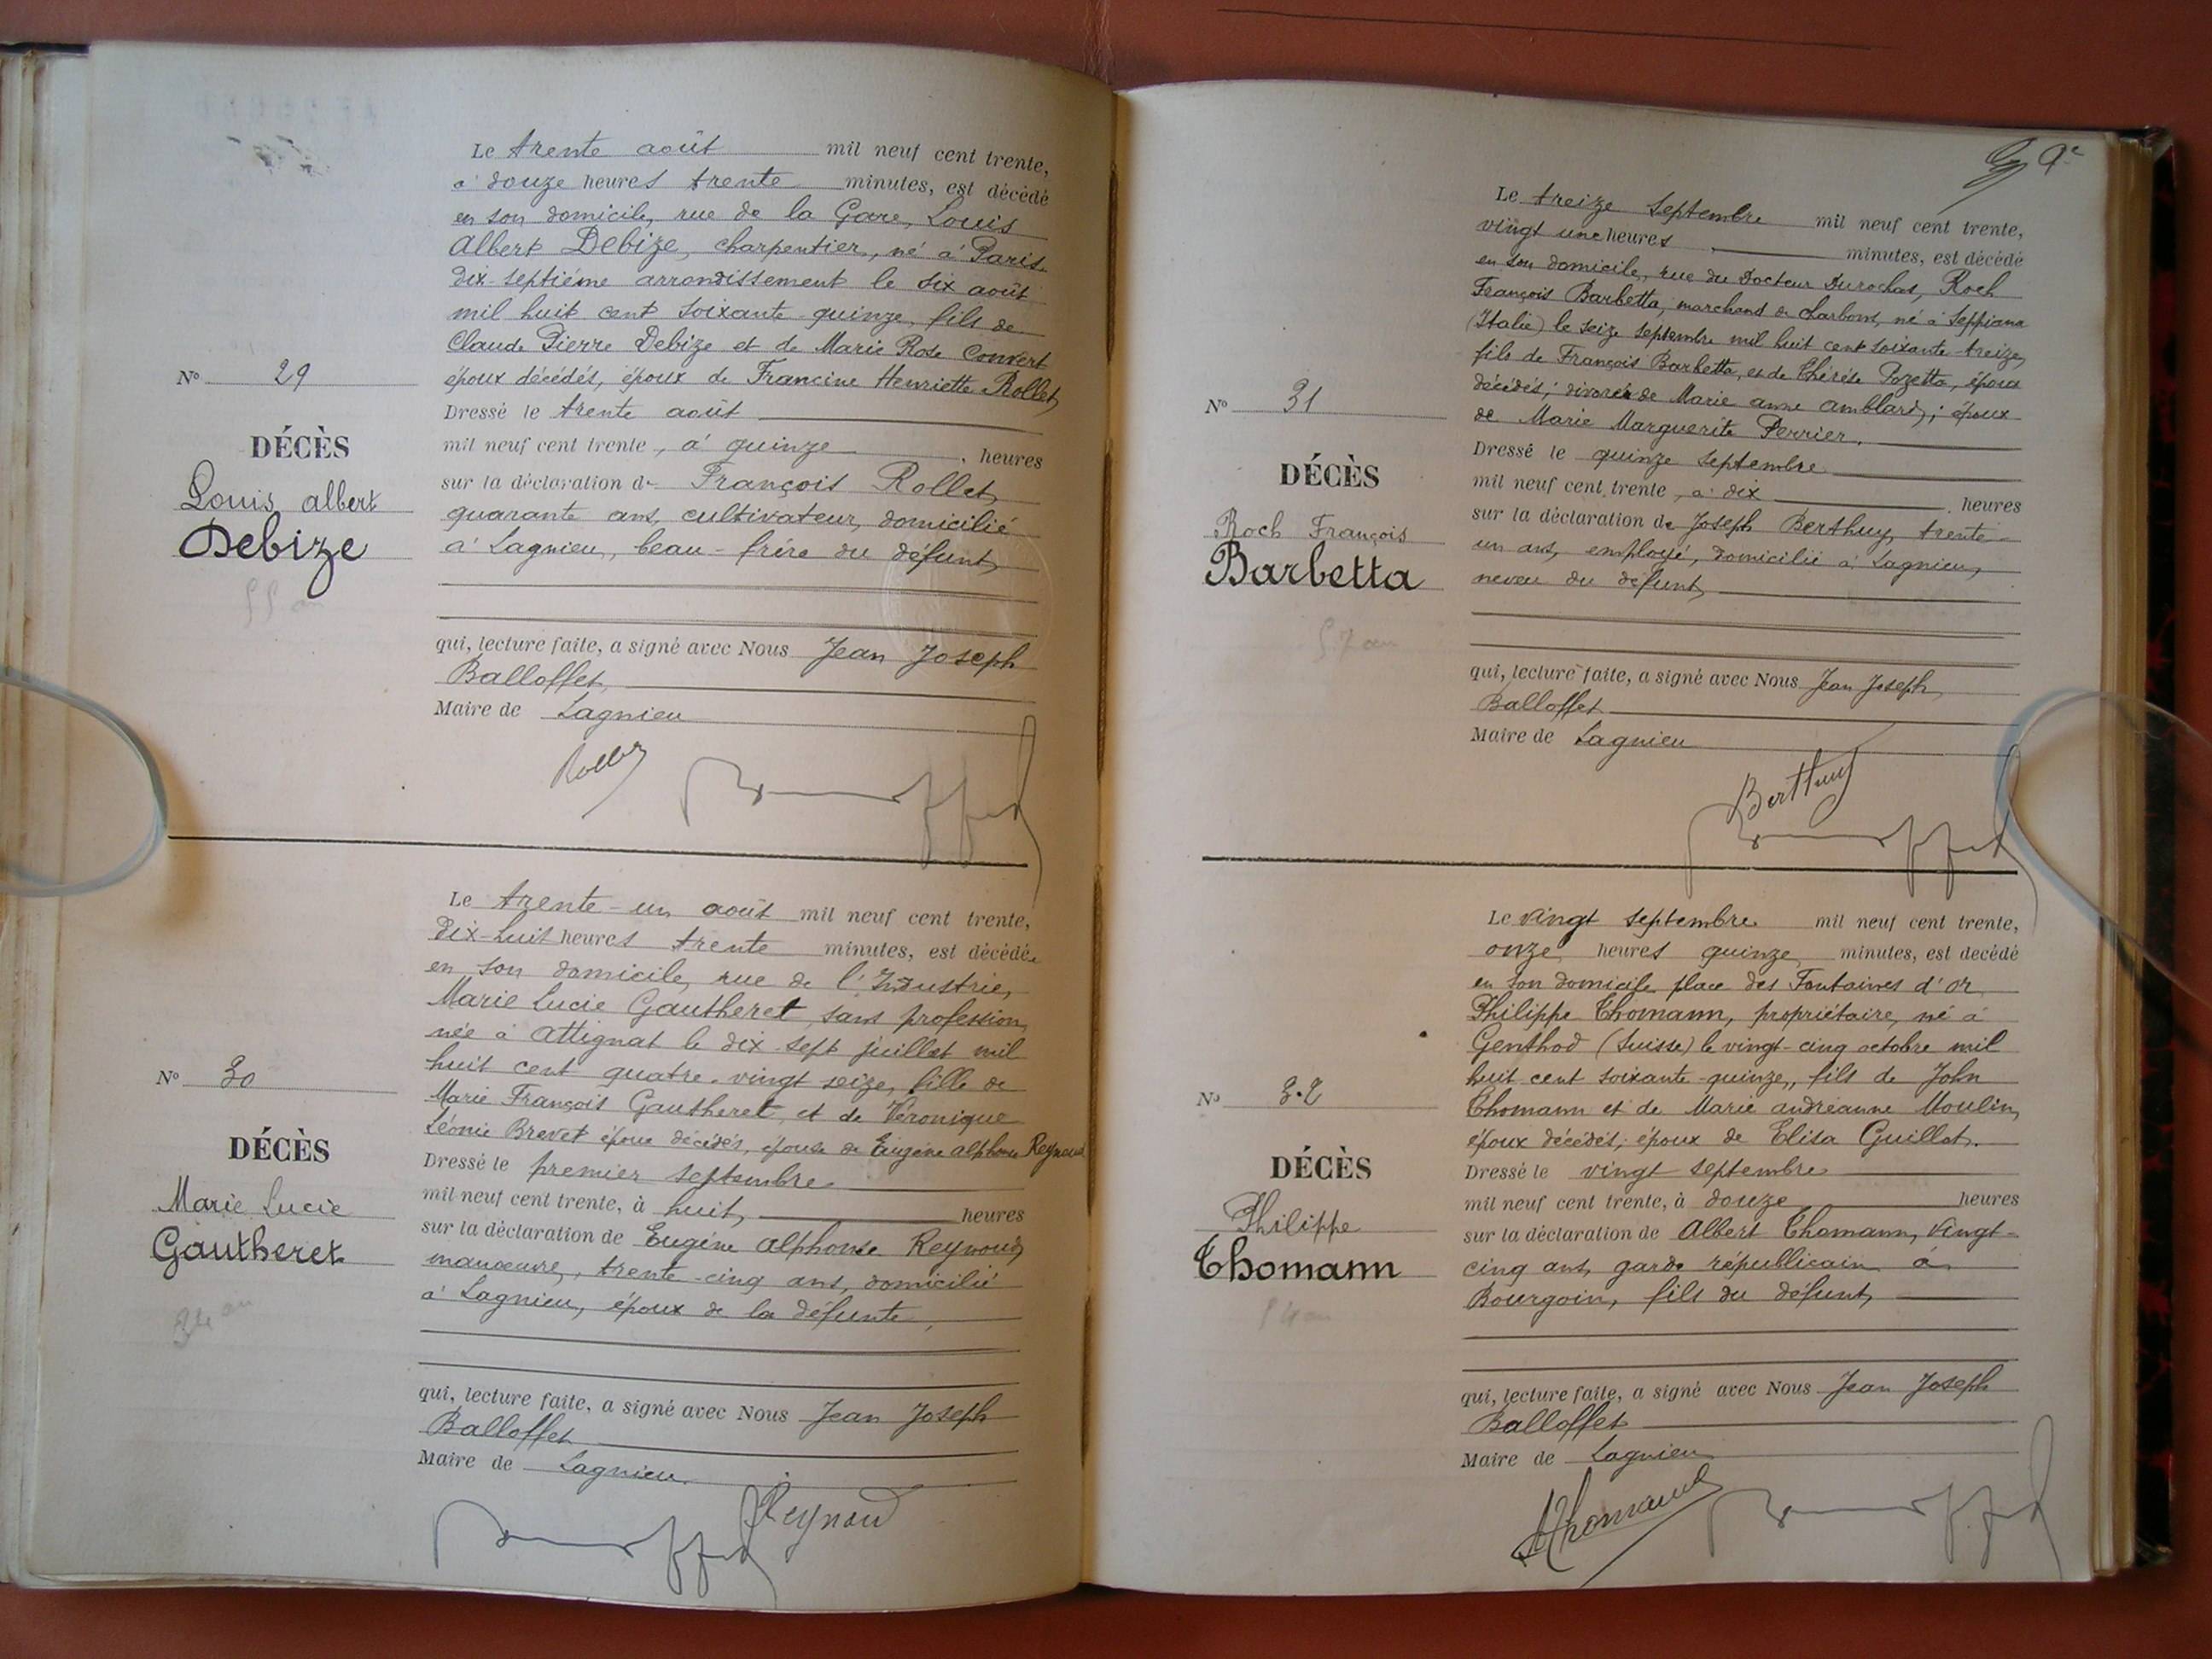 Le trente août mil neuf cent trente,
à douze heures trente minutes, est décédé
en son domicile, rue de la Gare, Louis
Albert Debize, charpentier, né à Paris
dix-septième arrondissement le six août
mil huit cent soixante-quinze, fils de
Claude Pierre Debize et de Marie Rose Convert
époux décédés, époux de Francine Henriette Rollet,
N° 29
DÉCÈS
Louis, albert
Debize
55 a
Dressé le trente août
mil neuf cent trente, à quinze heures
sur la déclaration de François Rollet,
quarante ans, cultivateur, domicilié
à Lagnieu, beau-frère du défunt,
qui, lecture faite, a signé avec Nous Jean Joseph
Balloffet,
Maire de Lagnieu
Rollet
Le trente-un août mil neuf cent trente,
dix-huit heures trente minutes, est décédée
en son domicile, rue de l'Industrie,
Marie Lucie Gautheret, sans profession,
née à Attignat le dix sept juillet mil
huit cent quatre-vingt seize, fille de
Marie François Gautheret et de Véronique
Léonie Brevet époux décédés, épouse de Eugène alphonse Reynaud
N° 30
DÉCÈS
Marie Lucie
Gautheret
34 an
Dressé le premier septembre
mil neuf cent trente, à huit, heures
sur la déclaration de Eugène alphonse Reynoud,
manoeuvre, trente-cinq ans, domicilié
à Lagnieu, époux de la défunte,
qui, lecture faite, a signé avec Nous Jean Joseph
Balloffet
Maire de Lagnieu.
Reynaud
Le treize septembre mil neuf cent trente,
vingt une heures minutes, est décédé
en son domicile, rue du Docteur Durochas, Roch
François Barbetta, marchand de charbons, né à Seppiana
(Italie) le seize septembre mil huit cent soixante-treize,
fils de François Barbetta, et de Thérèse Pozetta, époux
décédés; divorcé de Marie anne amblard; époux
de Marie Marguerite Perrier.
N° 31
DÉCÈS
Roch François
Barbetta
57 an
Dressé le quinze septembre
mil neuf cent trente, à dix heures
sur la déclaration de Joseph Berthuy, trente-
un ans, employé, domicilié à Lagnieu,
neveu du défunt,
qui, lecture faite, a signé avec Nous Jean Joseph
Balloffet
Maire de Lagnieu
Berthuy
Le vingt septembre mil neuf cent trente,
onze heures quinze minutes, est décédé
en son domicile place des Fontaines d'or
Philippe Thomann, propriétaire, né à
Genthod (Suisse) le vingt-cinq octobre mil
huit cent soixante-quinze, fils de John
Thomann et de Marie andréanne Moulin,
époux décédés, époux de Elisa Guillot.
N° 32
DÉCÈS
Philippe
Thomann
54 an
Dressé le vingt septembre
mil neuf cent trente, à douze heures
sur la déclaration de Albert Thomann, vingt-
cinq ans, garde républicain à
Bourgoin, fils du défunt,
qui, lecture faite, a signé avec Nous Jean Joseph
Balloffet
Maire de Lagnieu
AThomann